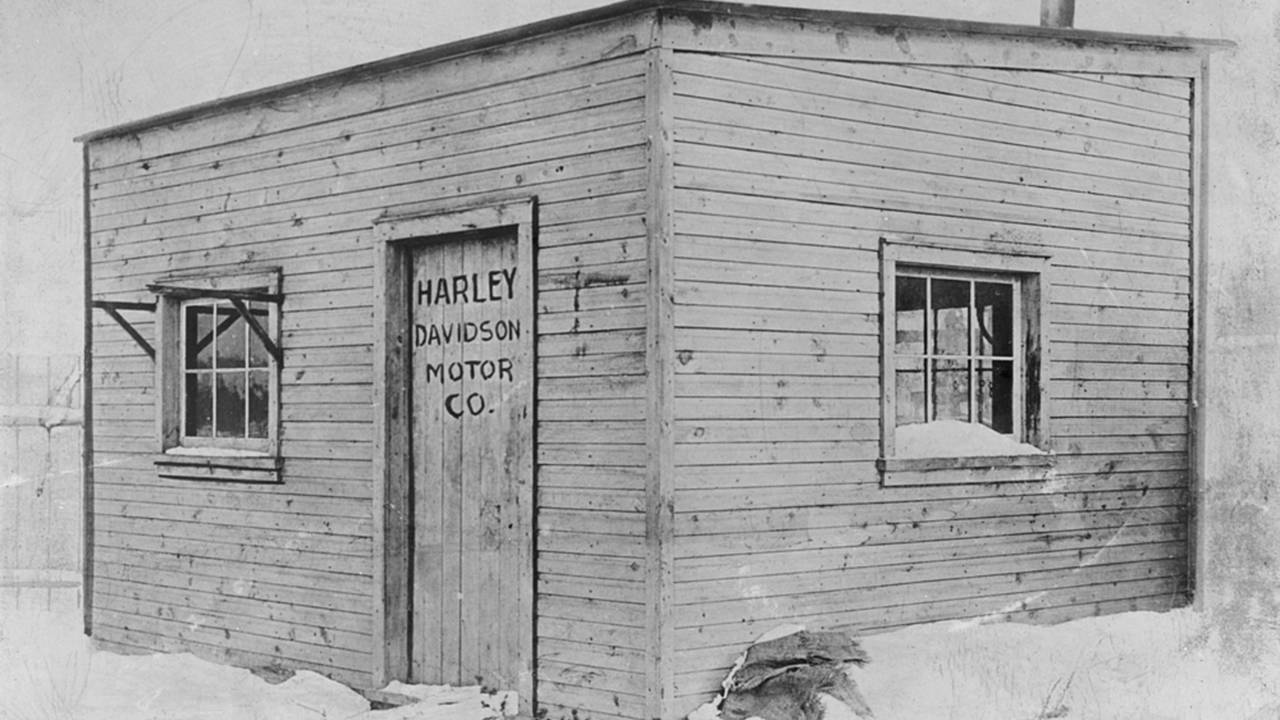 HARLEY
DAVIDSON
MOTOR
CO.